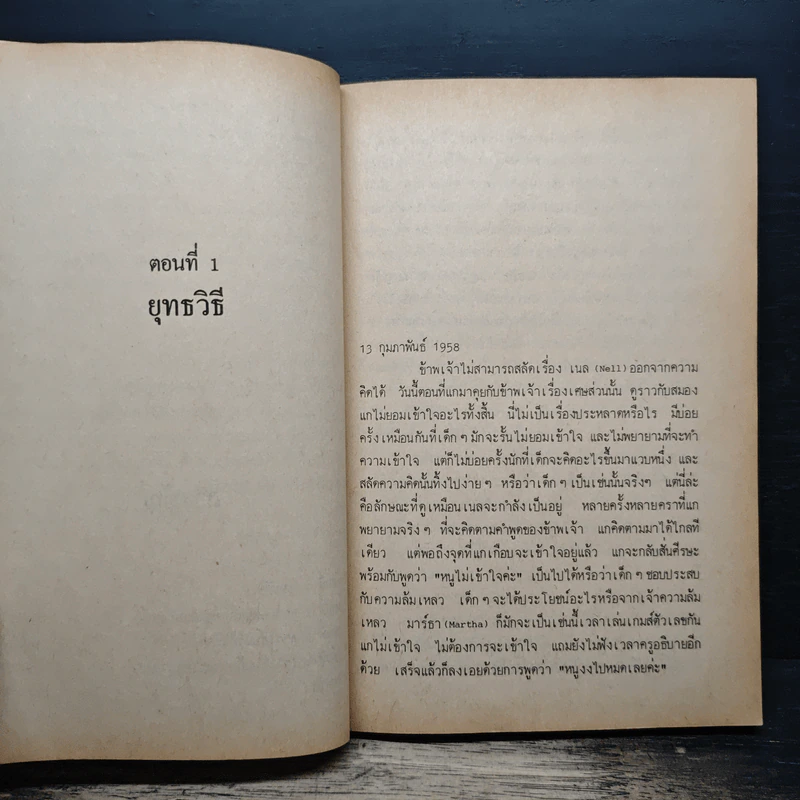 ตอนที่ 1
ยุทธวิธี
13 กุมภาพันธ์ 1958
ข้าพเจ้าไม่สามารถสลัดเรื่อง เนล (Nell) ออกจากความ
คิดได้ วันนี้ตอนที่แกมาคุยกับข้าพเจ้าเรื่องเศษส่วนนั้น ดูราวกับสมอง
แกไม่ยอมเข้าใจอะไรทั้งสิ้น นี่ไม่เป็นเรื่องประหลาดหรือไร มีบ่อย
ครั้งเหมือนกันที่เด็กๆ มักจะรั้นไม่ยอมเข้าใจ และไม่พยายามที่จะทำ
ความเข้าใจ แต่ก็ไม่บ่อยครั้งนักที่เด็กจะคิดอะไรขึ้นมาแวบหนึ่ง และ
สลัดความคิดนั้นทิ้งไปง่ายๆ หรือว่าเด็กๆ เป็นเช่นนั้นจริงๆ แต่นี่ล่ะ
คือลักษณะที่ดูเหมือนเนลจะกำลังเป็นอยู่ หลายครั้งหลายคราที่แก
พยายามจริงๆ ที่จะคิดตามคำพูดของข้าพเจ้า แกคิดตามมาได้ไกลที
เดียว แต่พอถึงจุดที่แกเกือบจะเข้าใจอยู่แล้ว แกจะกลับสั่นศีรษะ
พร้อมกับพูดว่า "หนูไม่เข้าใจค่ะ" เป็นไปได้หรือว่าเด็กๆ ชอบประสบ
กับความล้มเหลว เด็กๆ จะได้ประโยชน์อะไรหรือจากเจ้าความล้ม
เหลว มาร์ธา (Martha) ก็มักจะเป็นเช่นนี้เวลาเล่นเกมส์ตัวเลขกัน
แกไม่เข้าใจ ไม่ต้องการจะเข้าใจ แถมยังไม่ฟังเวลาครูอธิบายอีก
ด้วย เสร็จแล้วก็ลงเอยด้วยการพูดว่า "หนูงงไปหมดเลยค่ะ"